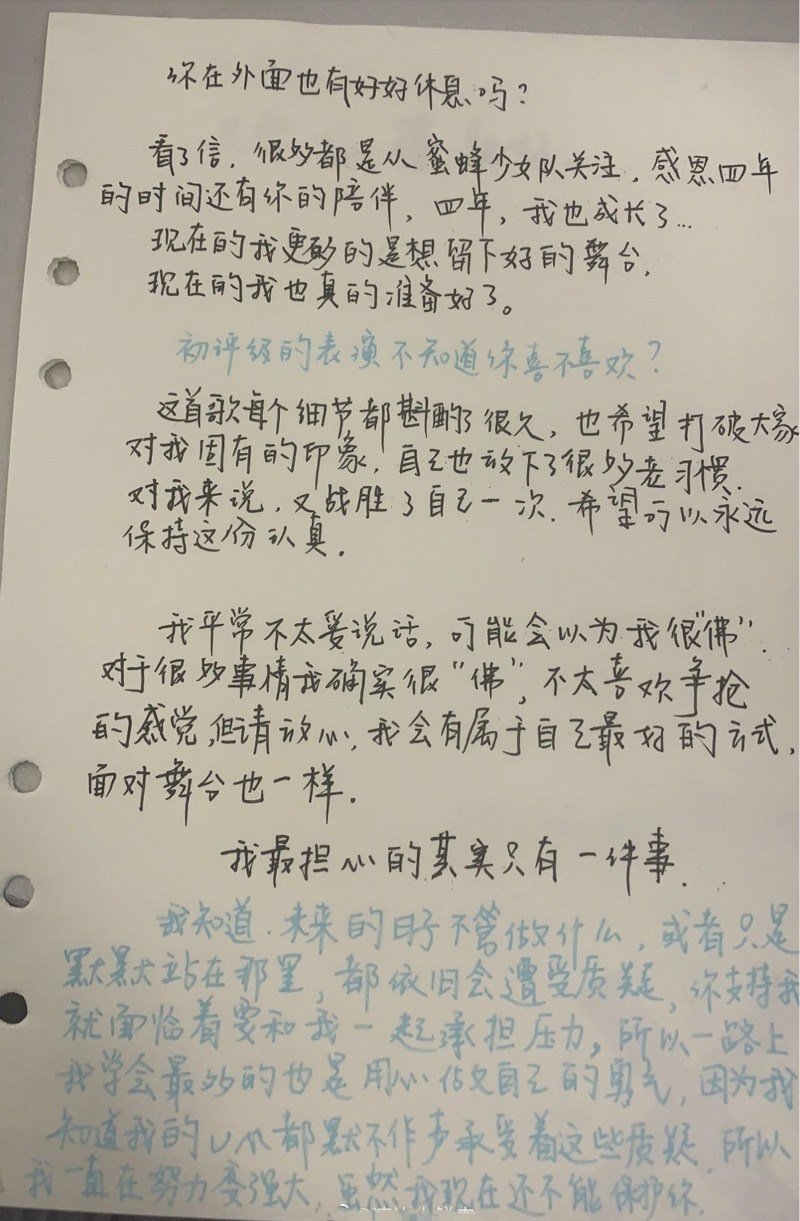 你在外面也有好好休息吗?
看了信，很多都是从蜜蜂少女队关注，感恩四年
的时间还有你的陪伴，四年，我也成长了...
现在的我更多的是想留下好的舞台，
现在的我也真的准备好了。
初评级的表演不知道你喜不喜欢？
这首歌每个细节都斟酌了很久，也希望打破大家
对我固有的印象，自己也放下了很多老习惯.
对我来说，又战胜了自己一次.希望可以永远
保持这份认真.
我平常不太爱说话，可能会以为我很"佛".
对于很多事情我确实很"佛"，不太喜欢争抢
的感觉,但请放心，我会有属于自己最好的方式，
面对舞台也一样.
我最担心的其实只有一件事.
我知道.未来的日子不管做什么，或者只是
默默站在那里，都依旧会遭受质疑，你支持我
就面临着要和我一起承担压力，所以一路上
我学会最多的也是用心做自己的勇气，因为我
知道我的都默不作声承受着这些质疑.所以
我一直在努力变强大，虽然我现在还不能保护你.